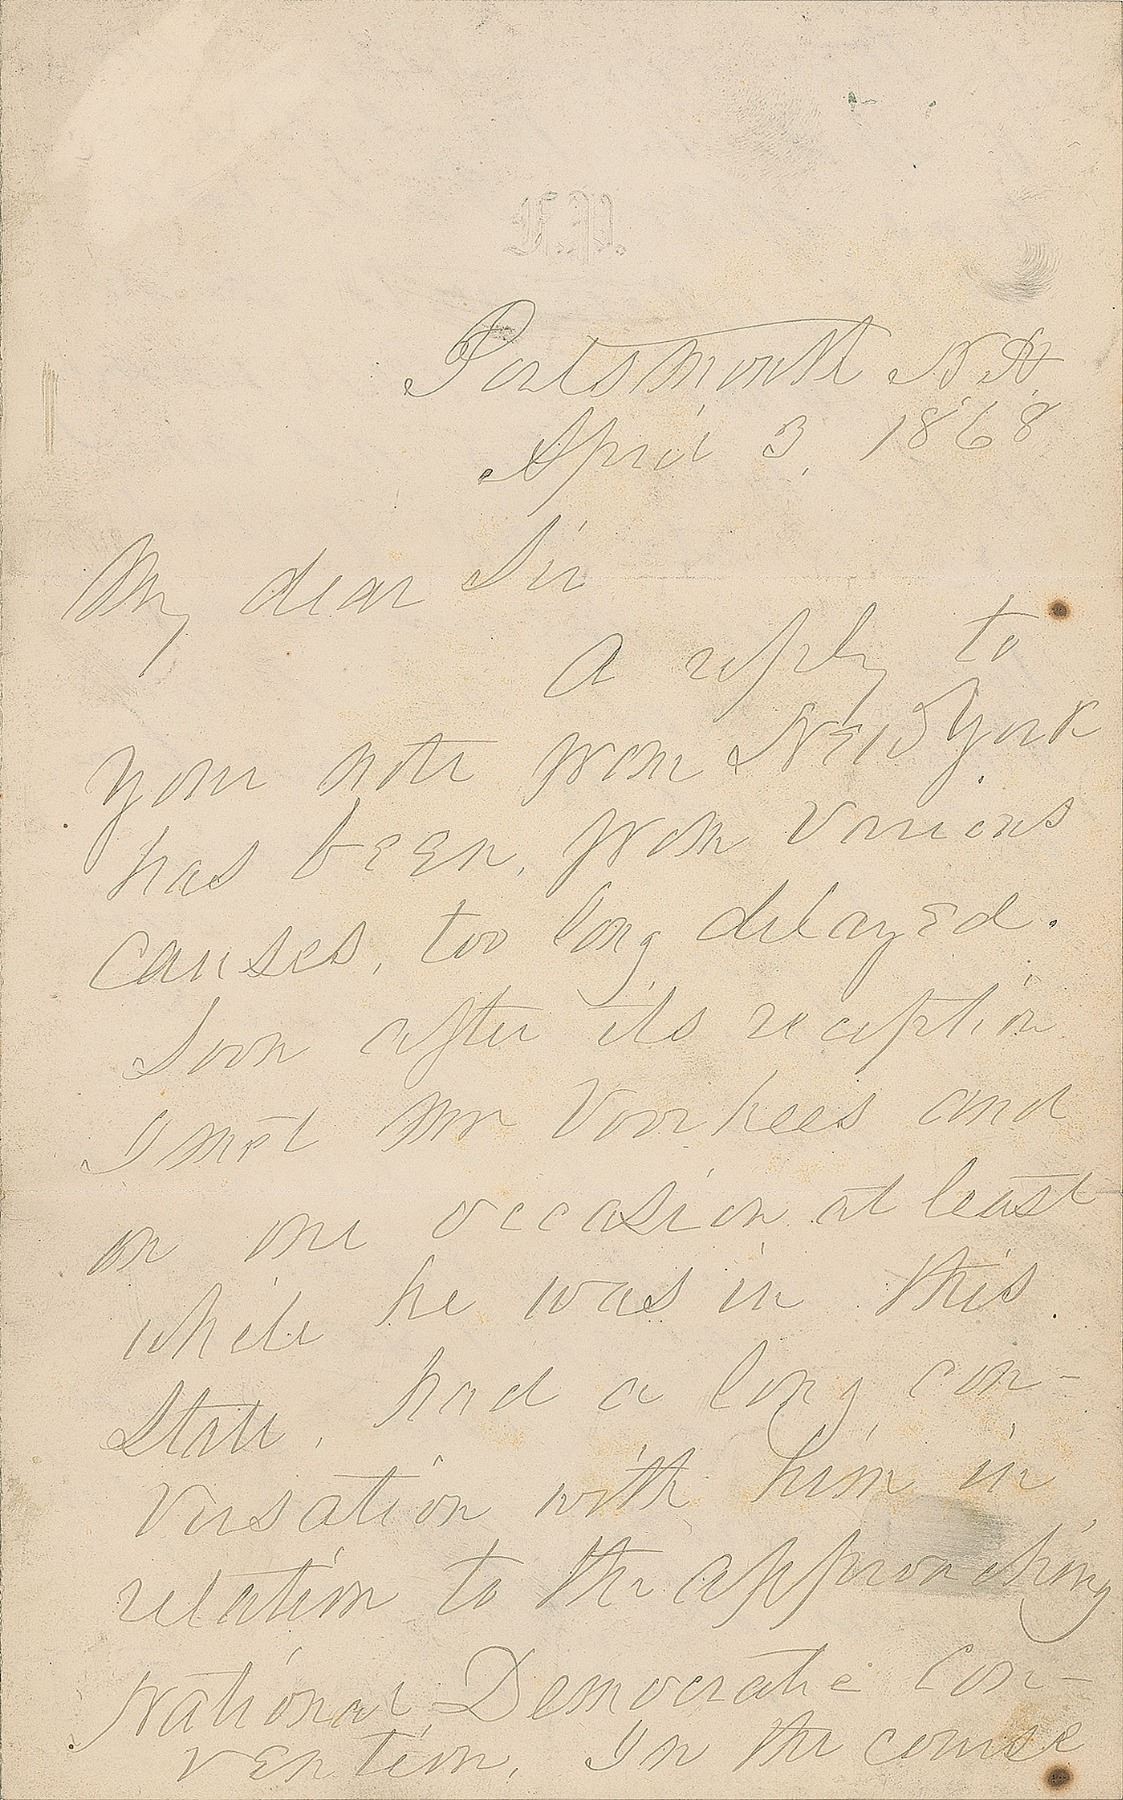 F.P.
Portsmouth N.H.
April 3, 1868
My dear Sir
A reply to
your note from New York
has been, from various
causes, too long delayed.
Soon after its reception
I met Mr Voorhees and
on one occasion at least
while he was in this
State, had a long con-
versation with him in
relation to the approaching
National Democratic con-
vention. In the course